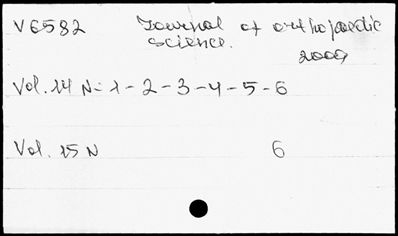 V6582 Journal of orthopaedic
science.
2009
Vol. 14 N= 1 - 2 - 3 - 4 - 5 - 6
Vol. 15 N 6